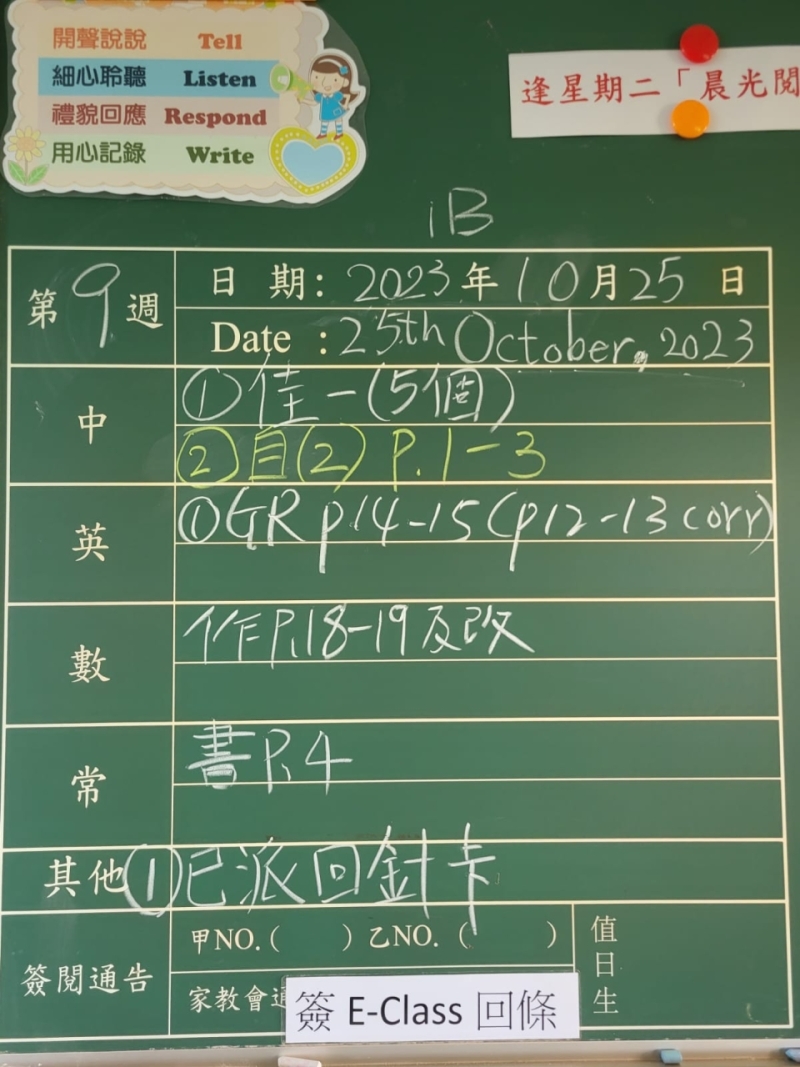 開聲說說 Tell
細心聆聽 Listen
禮貌回應 Respond
用心記錄 Write
逢星期二「晨光閱
1B
第9週
日期：2023年10月25日
Date：25th October, 2023
中
①佳一(5個)
②自(2) P.1-3
英
①GR p14-15 (p12-13 corr)
數
作P.18-19及改
常
書P.4
其他 ①已派回針卡
簽閱通告
甲NO.(    ) 乙NO.(    )
家教會通
簽 E-Class 回條
值日生